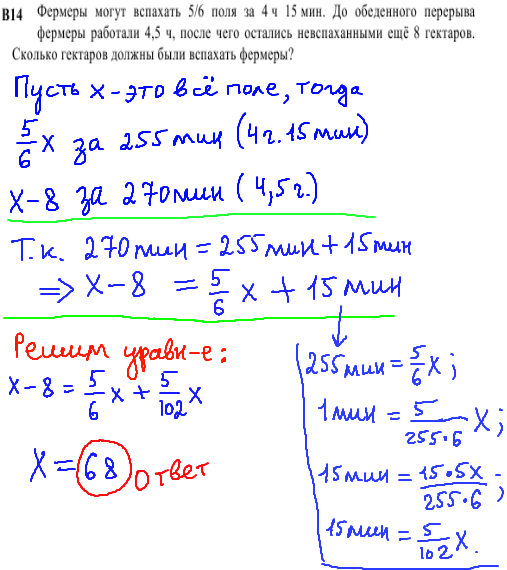 B14 Фермеры могут вспахать 5/6 поля за 4 ч 15 мин. До обеденного перерыва
фермеры работали 4,5 ч, после чего остались невспаханными ещё 8 гектаров.
Сколько гектаров должны были вспахать фермеры?
Пусть х-это всё поле, тогда
5/6 х за 255 мин (4г. 15мин)
х-8 за 270мин (4,5г.)
Т.к. 270мин = 255мин + 15мин
⇒ х-8 = 5/6 х + 15 мин
Решим уравн-е:
х-8 = 5/6 х + 5/102 х
х = 68 ответ
255мин = 5/6 х;
1мин = 5/255·6 х;
15мин = 15·5х/255·6;
15мин = 5/102 х.